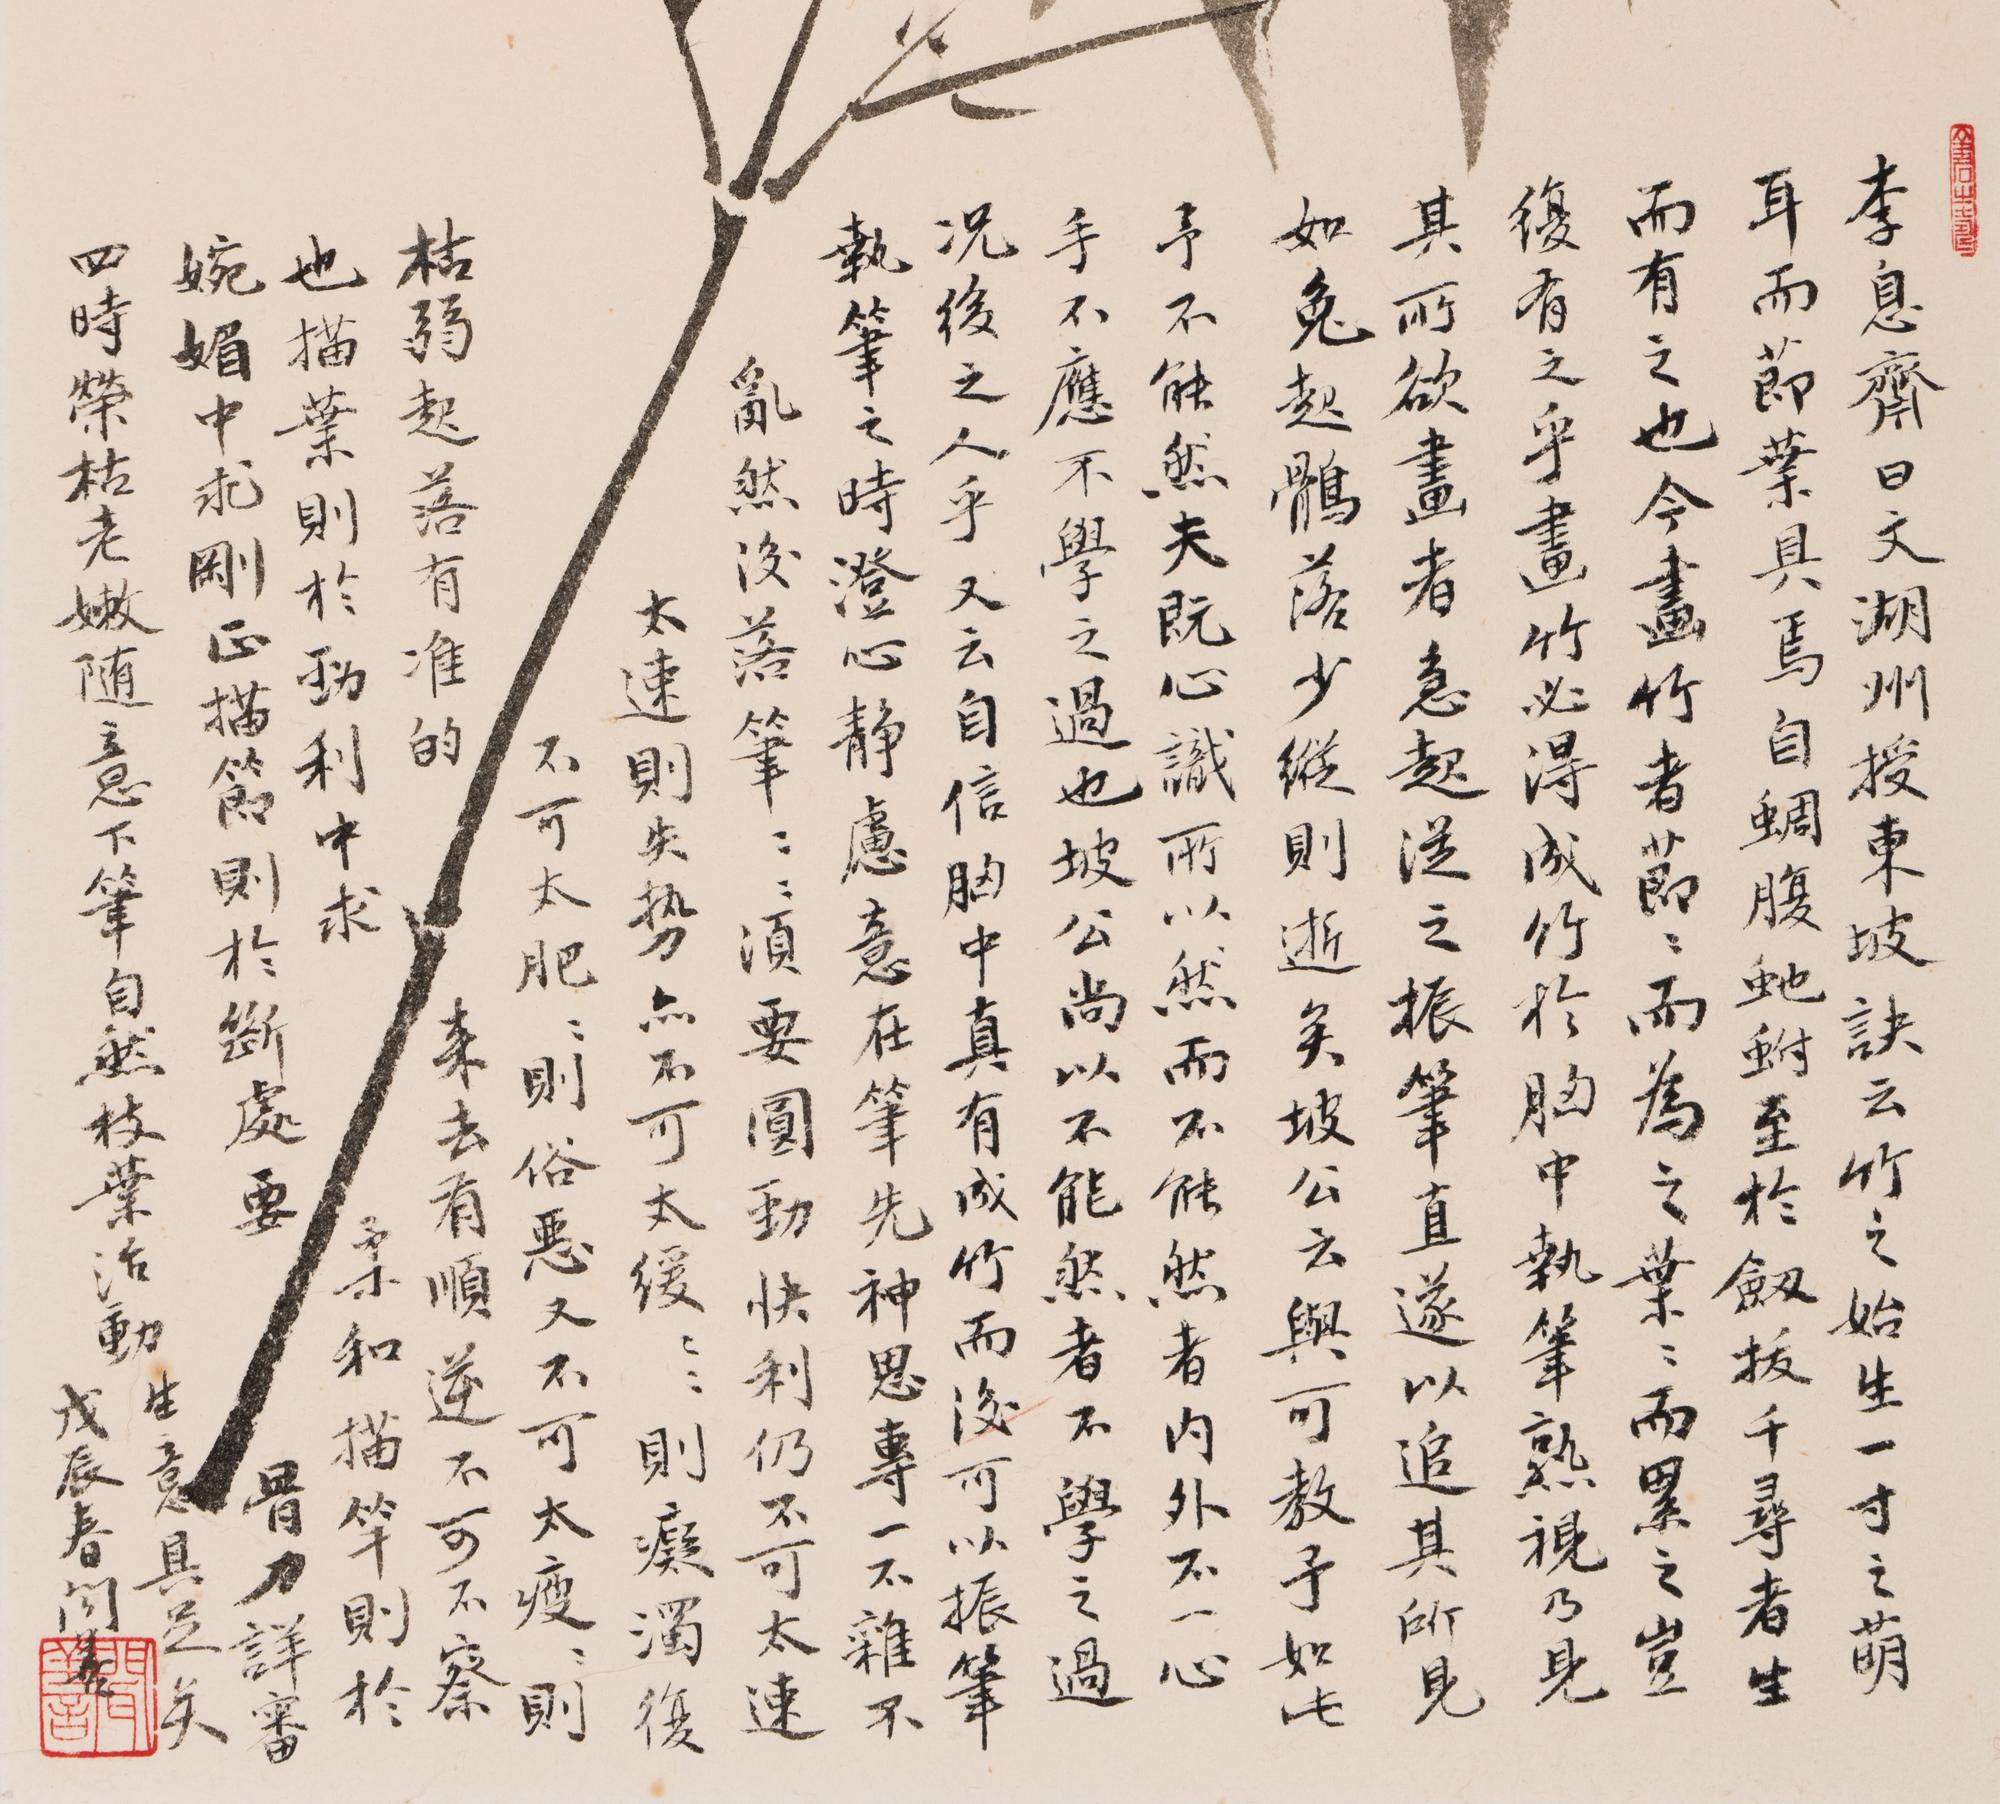 李息齋曰文湖州授東坡訣云竹之始生一寸之萌
耳而節葉具焉自蜩腹虵蚹至於劔拔千尋者生
而有之也今畫竹者節〻而為之葉〻而累之豈
復有之乎畫竹必得成竹於胸中執筆熟視乃見
其所欲畫者急起從之振筆直遂以追其所見
如兔起鶻落少縱則逝矣坡公云與可教予如此
予不能然夫既心識所以然而不能然者内外不一心
手不應不學之過也坡公尚以不能然者不學之過
況後之人乎又云自信胸中真有成竹而後可以振筆
執筆之時澄心静慮意在筆先神思專一不雜不
亂然後落筆〻〻須要圓勁快利仍不可太速
太速則失势亦不可太緩〻〻則癡濁復
不可太肥〻則俗惡又不可太瘦〻則
枯弱起落有准的來去有順逆不可不察
也描葉則於勁利中求柔和描竿則於
婉媚中求剛正描節則於斷處要骨力詳審
四時榮枯老嫩随意下筆自然枝葉活動
生意具足矣
戊辰春